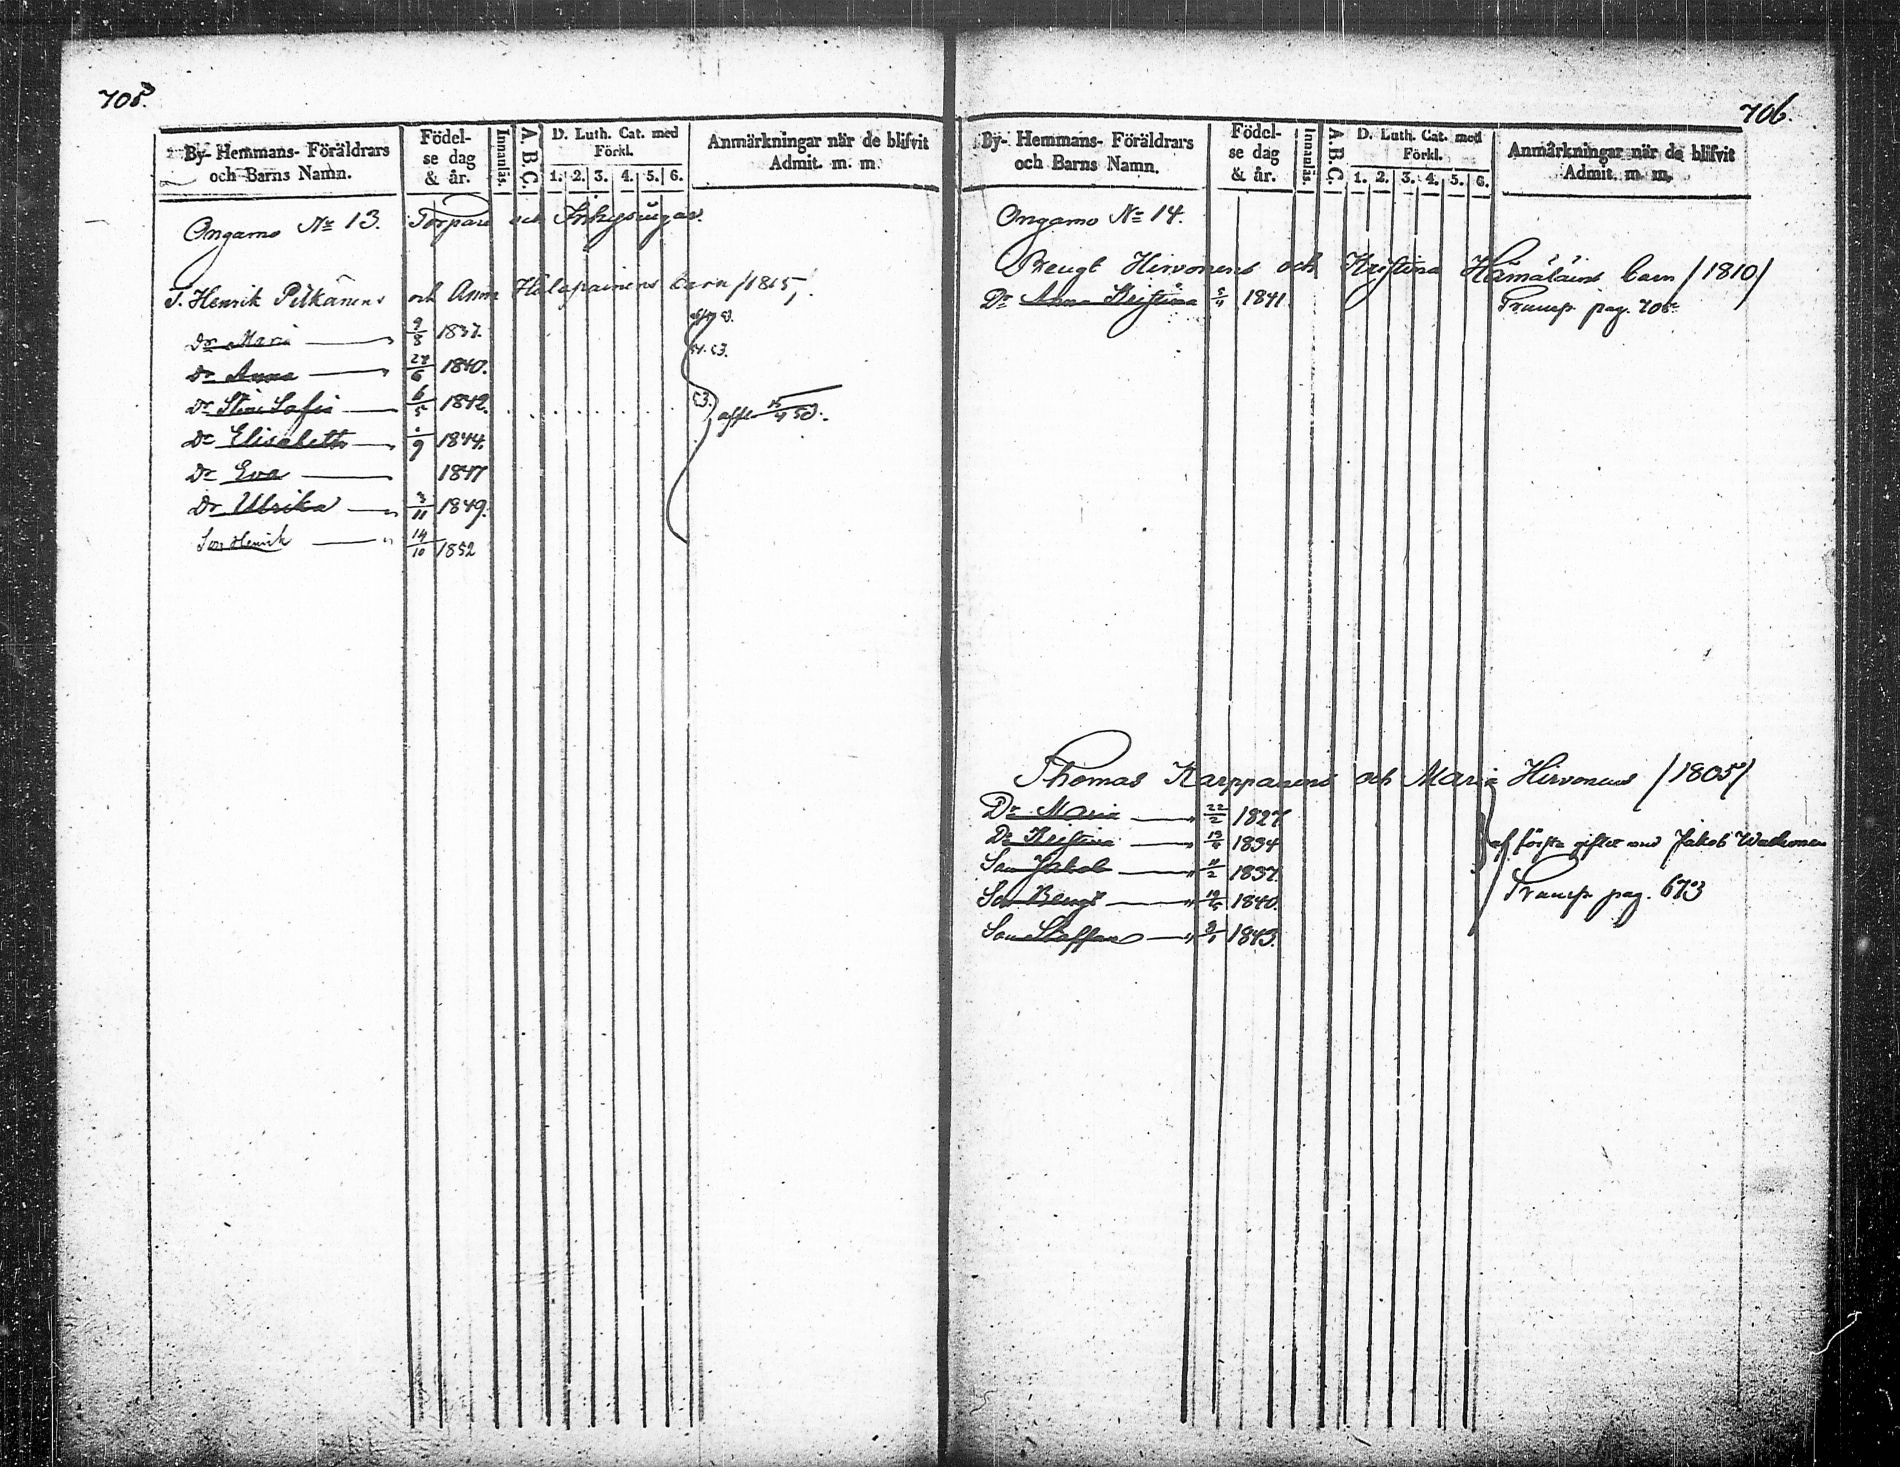 705.
By- Hemmans- Föräldrars och Barns Namn.
Födel- se dag & år.
Innanläs.
A. B. C.
D. Luth. Cat. med Förkl.
1. 2. 3. 4. 5. 6.
Anmärkningar när de blifvit Admit. m. m.
Ongamo No 13. Torpare och Inhysingar.
T. Henrik Pitkänens och Anna Halapainens barn /1815/.
Dr Maria 9/8 1837.
Dr Anna 27/6 1840.
53.
Dr Stina Sofia 6/5 1842.
53.
Dr Elisabeth /9 1844.
Dr Eva 1847
Dr Ulrika 3/11 1849.
Son Henrik 14/10 1852
706.
By- Hemmans- Föräldrars och Barns Namn.
Födel- se dag & år.
Innanläs.
A. B. C.
D. Luth. Cat. med Förkl.
1. 2. 3. 4. 5. 6.
Anmärkningar när de blifvit Admit. m. m.
Ongamo No 14.
Bengt Hirvonens och Kristina Hämäläins barn /1810/
Dr Anna Kristina 1841.
Transp. pag. 705
Thomas Karppanens och Maria Hirvonens /1805/
Dr Maria 22/2 1827.
Dr Kristina 1834
af första giftet med Jakob
Son Jakob 11/2 1837.
Transp. pag. 673
Son Bengt 1840.
Son Staffan 1843.